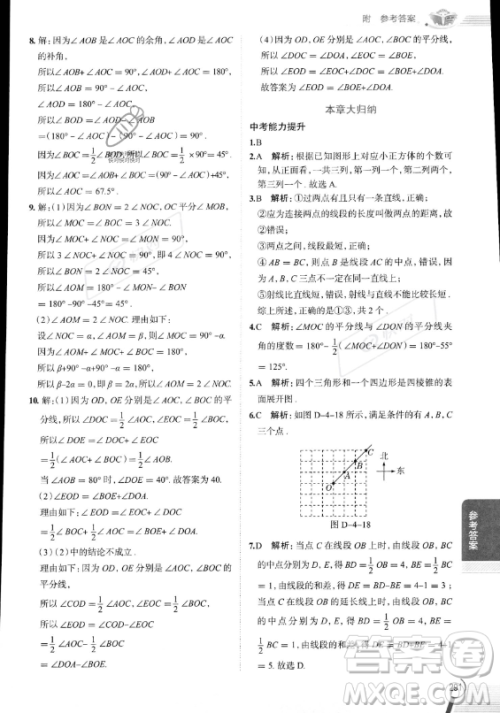 附 参考答案
8. 解：因为∠AOB是∠AOC的余角，∠AOD是∠AOC
的补角，
所以∠AOB+∠AOC=90°，∠AOD+∠AOC=180°，
所以∠AOB=90°-∠AOC，
∠AOD=180°-∠AOC，
所以∠BOD=∠AOD-∠AOB
=(180°-∠AOC)-(90°-∠AOC)=90°.
因为∠BOC=1/2∠BOD，所以∠BOC=1/2×90°=45°.
因为∠BOC=∠AOC-∠AOB=∠AOC-(90°-∠AOC)=45°，
所以∠AOC=67.5°.
9. 解：(1)因为∠BON=2∠NOC，OC平分∠MOB，
所以∠MOC=∠BOC=3∠NOC.
因为∠MOC+∠NOC=∠MON=90°，
所以3∠NOC+∠NOC=90°，即4∠NOC=90°，
所以∠BON=2∠NOC=45°，
所以∠AOM=180°-∠MON-∠BON
=180°-90°-45°=45°.
(2)∠AOM=2∠NOC. 理由如下：
设∠NOC=α，∠AOM=β，则∠MOC=90°-α.
因为∠AOM+∠MOC+∠BOC=180°，
所以β+90°-α+90°-α=180°，
所以β-2α=0，即∠AOM=2∠NOC.
10. 解：(1)因为OD，OE分别是∠AOC，∠BOC的平
分线，所以∠DOE=∠DOC+∠EOC
=1/2(∠AOC+∠BOC)=1/2∠AOB.
因为∠AOB=80°，所以∠DOE=40°. 故答案为40.
(2)∠EOD=∠EOB+∠DOA.
理由如下：因为∠EOD=∠DOC+∠EOC
=1/2(∠AOC+∠BOC)，
所以∠EOD=∠EOB+∠DOA.
(3)(2)中的结论不成立.
理由如下：因为OD，OE分别是∠AOC，∠BOC的
平分线，
所以∠COD=1/2∠AOC，∠EOC=1/2∠BOC，
所以∠EOD=∠COD-∠EOC
=1/2∠AOC-1/2∠BOC
=∠DOA-∠EOB.
(4)因为OD，OE分别是∠AOC，∠BOC的平分线，
所以∠DOC=∠DOA，∠EOC=∠EOB，
所以∠EOD=∠EOC+∠DOC=∠EOB+∠DOA.
故答案为∠EOD=∠EOB+∠DOA.
本章大归纳
中考能力提升
1.B
2.A 解析：根据已知图形上对应小正方体的个数可
知，从正面看，第一列是两个，第二列是三个，第三
列是一个. 故选A.
3.B 解析：①过两点有且只有一条直线，正确；
②应为连接两点的线段的长度叫做两点的距离，故
②错误；
③两点之间，线段最短，正确；
④AB=BC，则点B是线段AC的中点，错误，因
为A，B，C三点不一定在同一直线上；
⑤射线比直线短，错误，不能比较长短.
综上所述，正确的共2个.
4.C 解析：∠MOC的平分线与∠DON的平分线夹
角的度数=180°-1/2(∠MOC+∠DON)=180°-55°
=125°.
5.A 解析：四个三角形和一个四边形是四棱锥的表
面展开图.
6.C 解析：如图D-4-18，满足条件的有A，B，C
三个点.
C
B
A
O
北
东
图D-4-18
7.D 解析：当点C在线段OB上时，由线段OB，BC
的中点分别为D，E，得BD=1/2OB=4，BE=1/2BC
=1，由线段的和差，得DE=BD-BE=4-1=3；
当点C在线段OB的延长线上时，由线段OB，BC
的中点分别为D，E，得BD=1/2OB=4，BE=
1/2BC=1，由线段的和差，得DE=BD+BE=4+1
=5. 故选D.
参考答案
答案圈
MXQE.COM